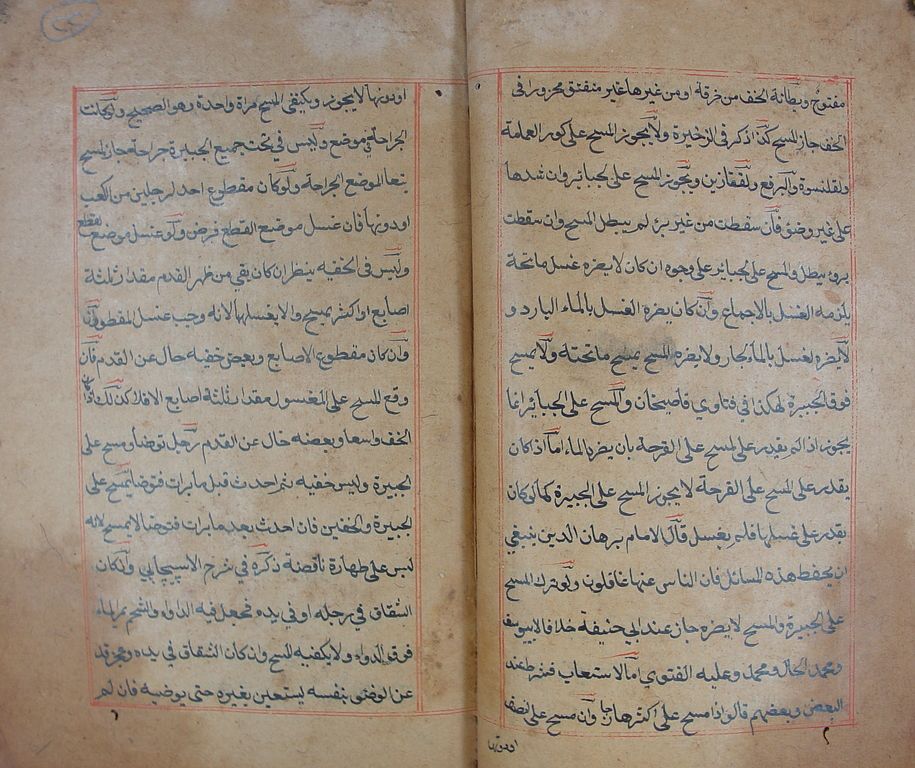 مفتوح وبطانة الخف من خرقة او من غيرها غير منفتق محرورا فى
الخف جاز المسح كذا ذكر فى الزخيرة ولا يجوز المسح على كور العمامة
ولقلنسوة والبرقع ولقفازين ويجوز المسح على لجبائر وان شدها
على غير وضئ فان سقطت من غير برء لم يبطل المسح وان سقطت
برء يبطل والمسح على لجبائر على وجوه ان كان لا يضره غسل ما تحته
يلزمه الغسل بالاجماع وان كان يضره الغسل بالماء البارد و
لا يضره لغسل بالماء لحار ولا يضره المسح يمسح ما تحته ولا يمسح
فوق الجبيرة لهكذا فى فتاوى قاضيخان والمسح على الجبائر انما
يجوز اذا لم يقدر على لمسح على القرحة بان يضرها الماء اما اذ كان
يقدر على المسح على القرحة لا يجوز المسح على الجبيرة كما لو كان
يقدر على غسلها فلم يغسل قال الامام برهان الدين ينبغى
ان يحفظ هذه المسائل فان الناس عنها غافلون ولو ترك المسح
على الجبيرة والمسح لا يضره جاز عند ابي حنيفة خلافا لابيوسف
ومحمد وعليه الفتوى اما الاستعاب فشرط عند
البعض وبعضهم قالو اذا مسح على اكثرها جاز وان مسح على نصفها
اودونها
اودونها لا يجوز ويكتفى المسح مرة واحدة وهو الصحيح ولو كانت
الجراحة في موضع وليس في تحت جميع الجبيرة جراحة جاز المسح
تبعا لموضع الجراحة ولو كان مقطوع احد لرجلين من الكعب
اودونها فان غسل موضع القطع فرض ولو غسل موضع لقطع
ولبس فى الخفيه ينظر ان كان بقي من ظهر القدم مقدار ثلثة
اصابع او اكثر يمسح والا يغسلها لانه وجب غسل المقطوع
وان كان مقطوع الاصابع وبعض خفيه خال عن القدم فان
وقع المسح على المغسول مقدار ثلثة اصابع والا فلا كذلك اذا كان
الخف واسعا وبعضه خال عن القدم رجل توضأ ومسح على
الجبيرة ولبس خفيه ثم احدث قبل ما برأت فتوضأ يمسح على
الجبيرة والخفين فان احدث بعد ما برات فتوضأ لا يمسح لانه
لبس على طهارة ناقصة ذكره في شرح الاسبيجابي وان كان
الشقاق في رجله او في يده فجعل فيه الدواء والشحم يمر الماء
فوق الدواء ولا يكفيه المسح وان كان الشقاق في يده وعجز قد
عن الوضئ بنفسه ليستعين بغيره حتى يوضيه فان لم